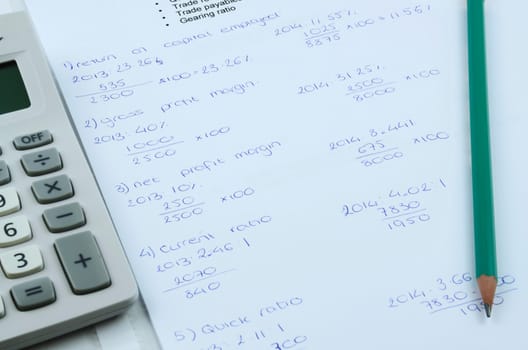 Trade payable
Gearing ratio
1) return on capital employed
2013 23.26%
535 x100 = 23.26%
2300
2014 11.55%
1025 x100 = 11.56%
8875
2) gross profit margin
2013. 40%
1000 x100
2500
2014 31.25%
2500 x100
8000
3) net profit margin
2013 10%
250 x100
2500
2014 8.44%
675 x100
8000
4) Current ratio
2013: 2.46:1
2070
840
2014: 4.02:1
7830
1950
5) Quick ratio
2.11:1
2014: 3.66
7830
1950
OFF
÷
×
9
6
−
3
+
=